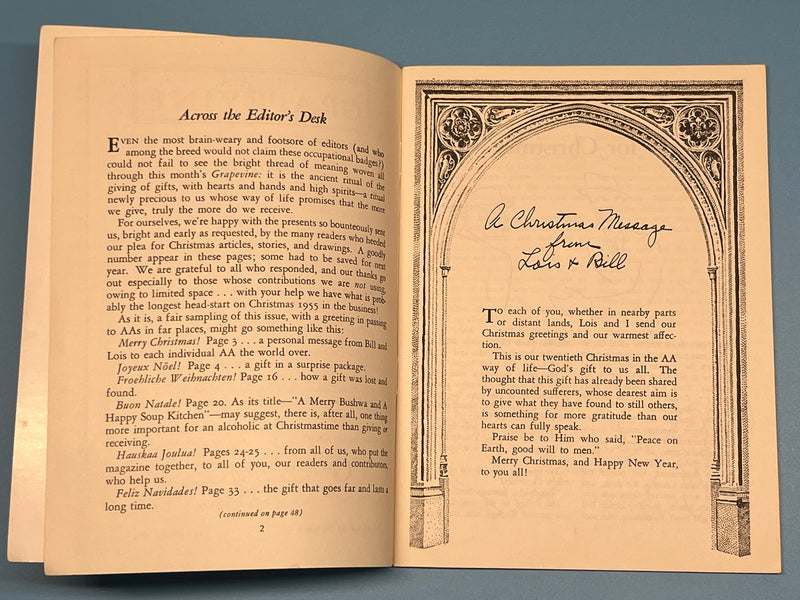 Across the Editor's Desk
EVEN the most brain-weary and footsore of editors (and who
among the breed would not claim these occupational badges?)
could not fail to see the bright thread of meaning woven all
through this month's Grapevine: it is the ancient ritual of the
giving of gifts, with hearts and hands and high spirits—a ritual
newly precious to us whose way of life promises that the more
we give, truly the more do we receive.
For ourselves, we're happy with the presents so bounteously sent
us, bright and early as requested, by the many readers who heeded
our plea for Christmas articles, stories, and drawings. A goodly
number appear in these pages; some had to be saved for next
year. We are grateful to all who responded, and our thanks go
out especially to those whose contributions we are not using,
owing to limited space . . . with your help we have what is prob-
ably the longest head-start on Christmas 1955 in the business!
As it is, a fair sampling of this issue, with a greeting in passing
to AAs in far places, might go something like this:
Merry Christmas! Page 3 . . . a personal message from Bill and
Lois to each individual AA the world over.
Joyeux Nöel! Page 4 . . . a gift in a surprise package.
Froehliche Weihnachten! Page 16 . . . how a gift was lost and
found.
Buon Natale! Page 20. As its title—"A Merry Bushwa and A
Happy Soup Kitchen"—may suggest, there is, after all, one thing
more important for an alcoholic at Christmastime than giving or
receiving.
Hauskaa Joulua! Pages 24-25 . . . from all of us, who put the
magazine together, to all of you, our readers and contributors,
who help us.
Feliz Navidades! Page 33 . . . the gift that goes far and lasts a
long time.
(continued on page 48)
2
A Christmas Message
from
Lois & Bill
To each of you, whether in nearby parts
or distant lands, Lois and I send our
Christmas greetings and our warmest affec-
tion.
This is our twentieth Christmas in the AA
way of life—God's gift to us all. The
thought that this gift has already been shared
by uncounted sufferers, whose dearest aim is
to give what they have found to still others,
is something for more gratitude than our
hearts can fully speak.
Praise be to Him who said, "Peace on
Earth, good will to men."
Merry Christmas, and Happy New Year,
to you all!